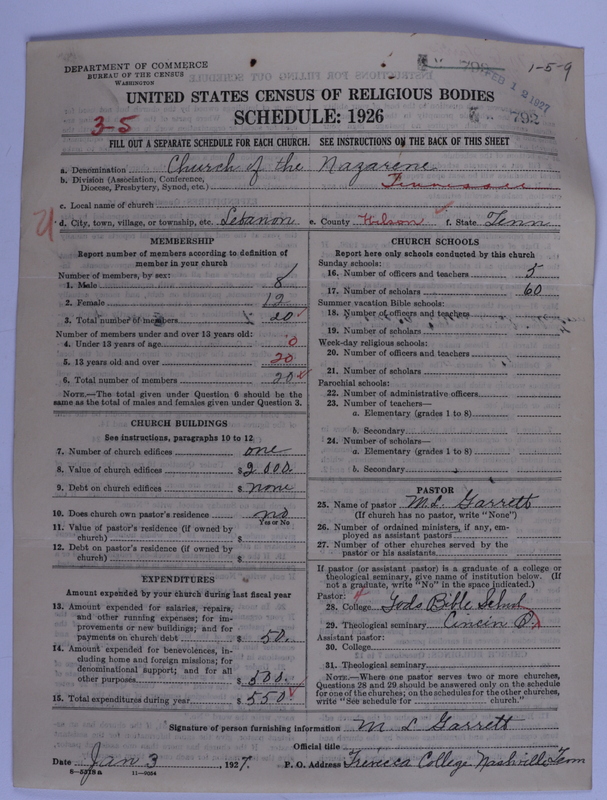 DEPARTMENT OF COMMERCE
BUREAU OF THE CENSUS
WASHINGTON
1-5-9
FEB 12 1927
792
UNITED STATES CENSUS OF RELIGIOUS BODIES
SCHEDULE: 1926
3-5
FILL OUT A SEPARATE SCHEDULE FOR EACH CHURCH. SEE INSTRUCTIONS ON THE BACK OF THIS SHEET
a. Denomination Church of the Nazarene
b. Division (Association, Conference, Diocese, Presbytery, Synod, etc.) Tennessee
c. Local name of church
d. City, town, village, or township, etc. Lebanon e. County Wilson f. State Tenn
MEMBERSHIP
Report number of members according to definition of
member in your church
Number of members, by sex:
1. Male 8
2. Female 12
3. Total number of members 20
Number of members under and over 13 years old:
4. Under 13 years of age 0
5. 13 years old and over 20
6. Total number of members 20
NOTE.—The total given under Question 6 should be
same as the total of males and females given under Question 3.
CHURCH BUILDINGS
See instructions, paragraphs 10 to 12
7. Number of church edifices one
8. Value of church edifices $2000.
9. Debt on church edifices $none
10. Does church own pastor's residence? no
Yes or No
11. Value of pastor's residence (if owned by
church) $
12. Debt on pastor's residence (if owned by
church) $
EXPENDITURES
Amount expended by your church during last fiscal year
13. Amount expended for salaries, repairs,
and other running expenses; for im-
provements or new buildings; and for
payments on church debt $50.
14. Amount expended for benevolences, in-
cluding home and foreign missions; for
denominational support; and for all
other purposes $500.
15. Total expenditures during year $550
CHURCH SCHOOLS
Report here only schools conducted by this church
Sunday schools:
16. Number of officers and teachers 5
17. Number of scholars 60
Summer vacation Bible schools:
18. Number of officers and teachers
19. Number of scholars
Week-day religious schools:
20. Number of officers and teachers
21. Number of scholars
Parochial schools:
22. Number of administrative officers
23. Number of teachers—
a. Elementary (grades 1 to 8)
b. Secondary
24. Number of scholars—
a. Elementary (grades 1 to 8)
b. Secondary
PASTOR
25. Name of pastor M.L. Garrett
(If church has no pastor, write "None")
26. Number of ordained ministers, if any, em-
ployed as assistant pastors
27. Number of other churches served by the
pastor or his assistants
If pastor (or assistant pastor) is a graduate of a college or
theological seminary, give name of institution below. (If
not a graduate, write "No" in the space indicated.)
Pastor:
28. College Gods Bible School
29. Theological seminary Cincin O.
Assistant pastor:
30. College
31. Theological seminary
NOTE.—Where one pastor serves two or more churches,
Questions 28 and 29 should be answered only on the schedule
for one of the churches; on the schedules for the other churches,
write "See schedule for church."
Signature of person furnishing information M L Garrett
Official title
Date Jan 3, 1927. P. O. Address Trevecca College Nashville Tenn
11—9034